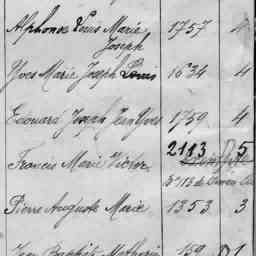 Alphonse Louis Marie 1757 4
Joseph
Yves Marie Joseph Louis 1634 4
Edouard Joseph Jean Yves 1759 4
2113 5
Francis Marie Victor
Pierre Auguste Marie 1353 3
Jean Baptiste Mathurin 159 1